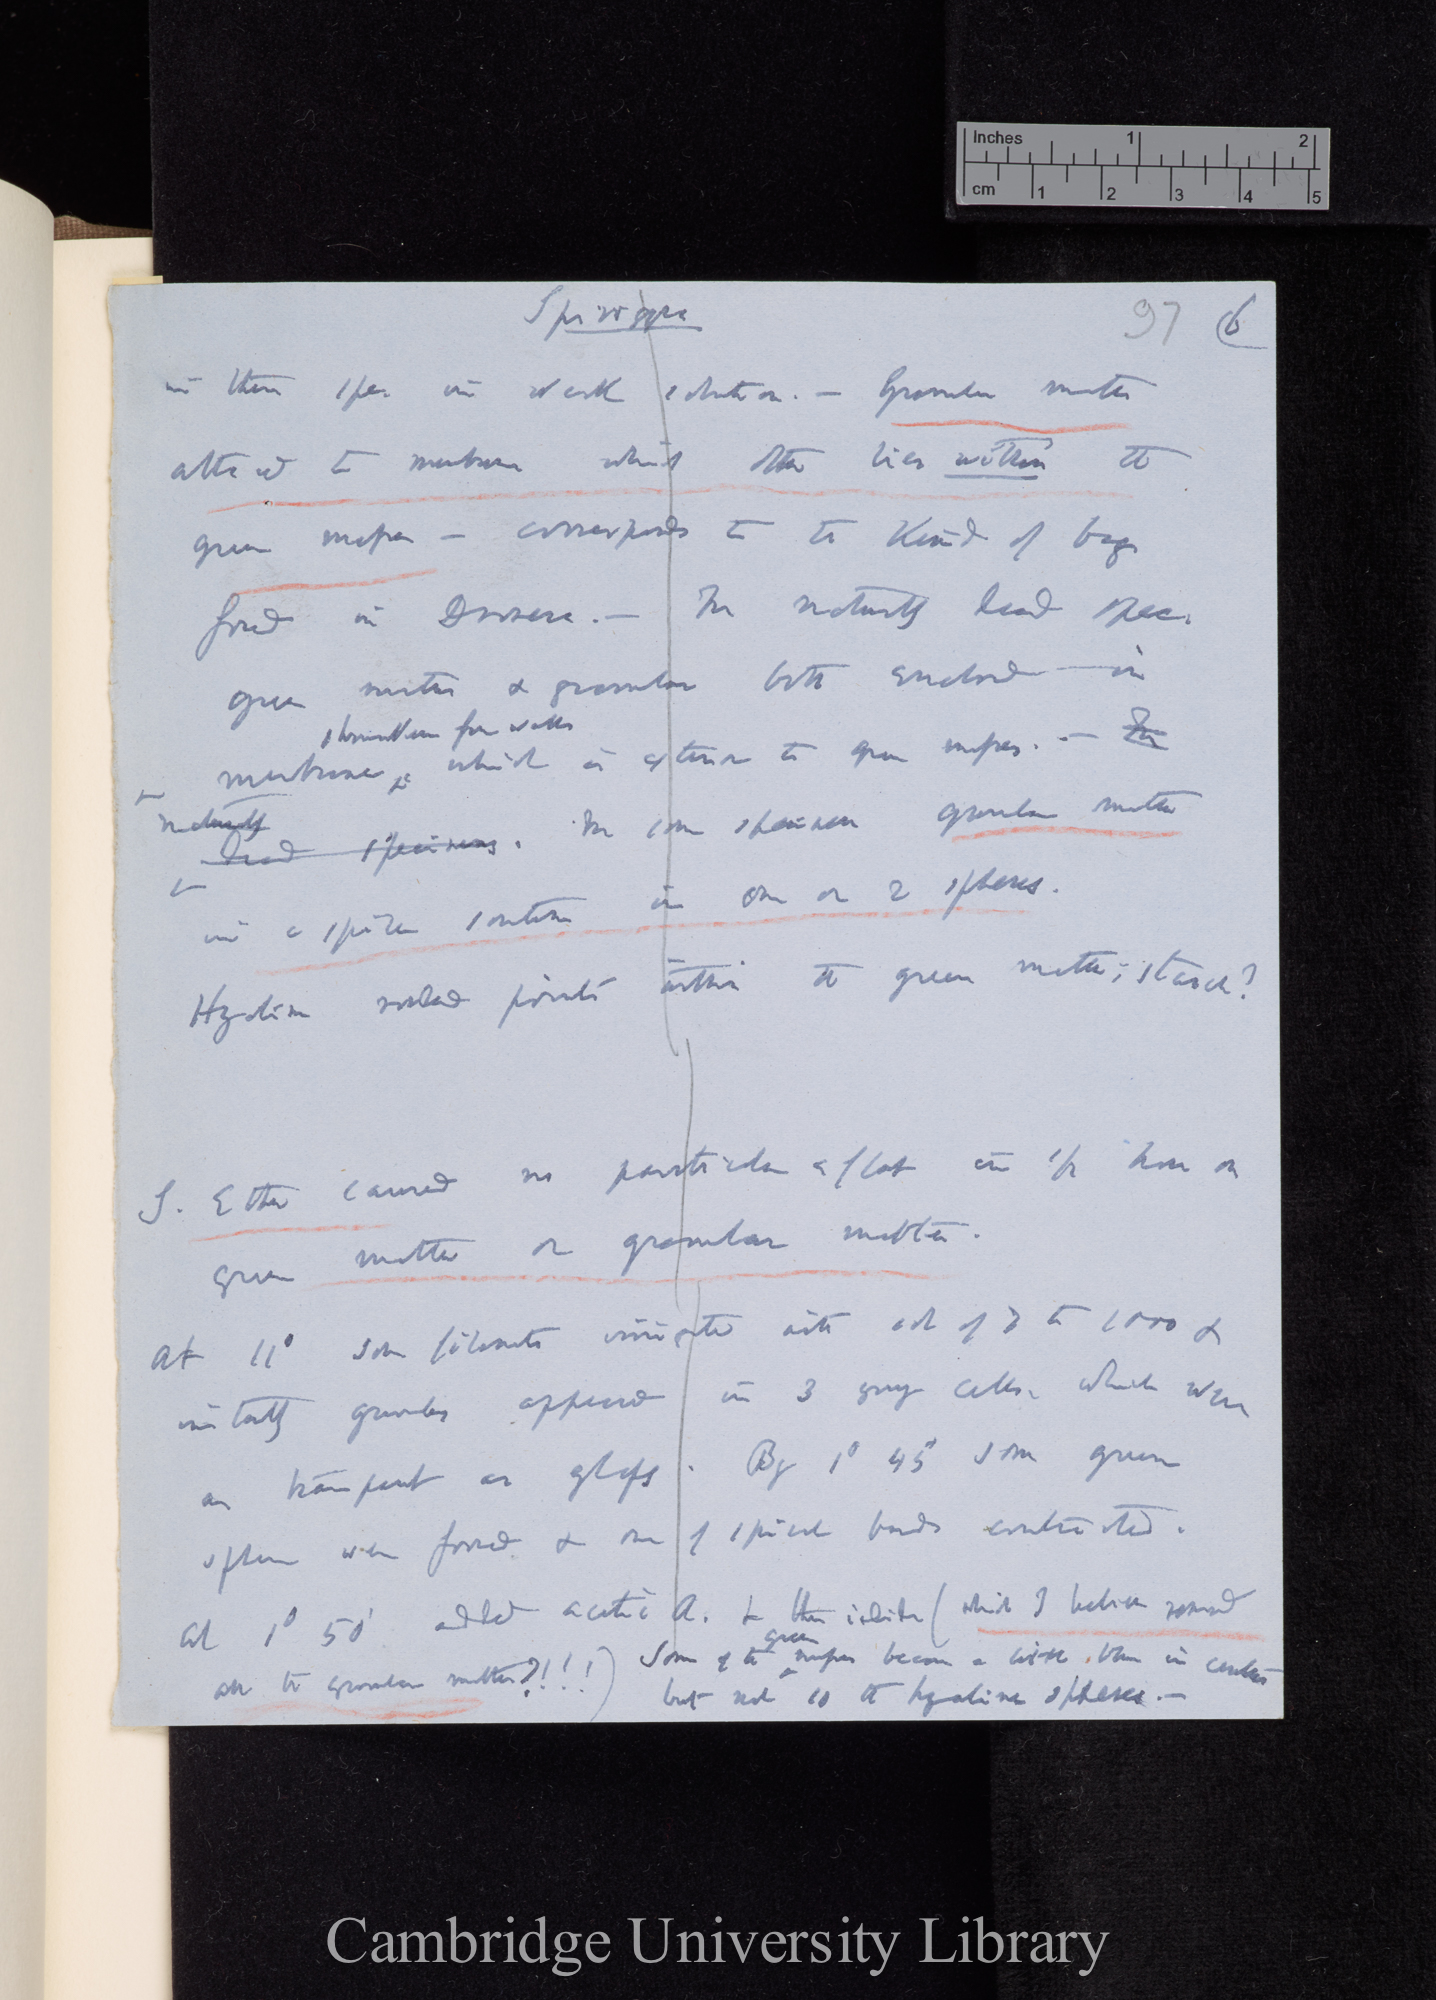 Inches 1 2
cm 1 2 3 4 5
Spirogyra
97 6
in their spec in weak solution. — Granular matter
attached to membrane which often lies within the
green masses — corresponds to the kind of bags
found in Drosera. — In naturally dead spec.
green matter & granular both enclosed in
shrunken from walls
membrane, which is exterior to green masses. — In
naturally
dead specimens. In some specimens granular matter
in a spira contain in one or 2 spheres.
Hyaline rounded points within the green matter; starch?
S. Ether caused no particular effect in 1/2 hour on
green matter or granular matter.
At 11° some filaments irrigated with sol of 7 to 1000 &
instantly granules appeared in 3 young cells, which were
as transparent as glass. By 1° 45' some green
spheres were formed & one of spiral bands contracted.
At 1° 50' added acetic A. & then iodine (which I believe removed
all the granular matter?!!!) Some of the green masses became a little blue in centre
but not so the hyaline spheres. —
Cambridge University Library